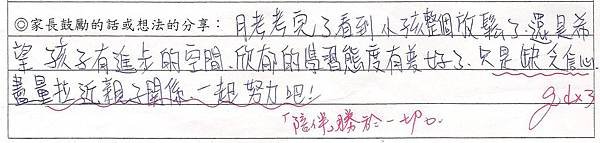 ◎家長鼓勵的話或想法的分享：月考考完了看到小孩整個放鬆了.還是希
望孩子有進步的空間.欣郁的學習態度有美好了.只是缺乏信心.
盡量拉近親子關係.一起努力吧!!
gdx3
「陪伴」勝於一切。